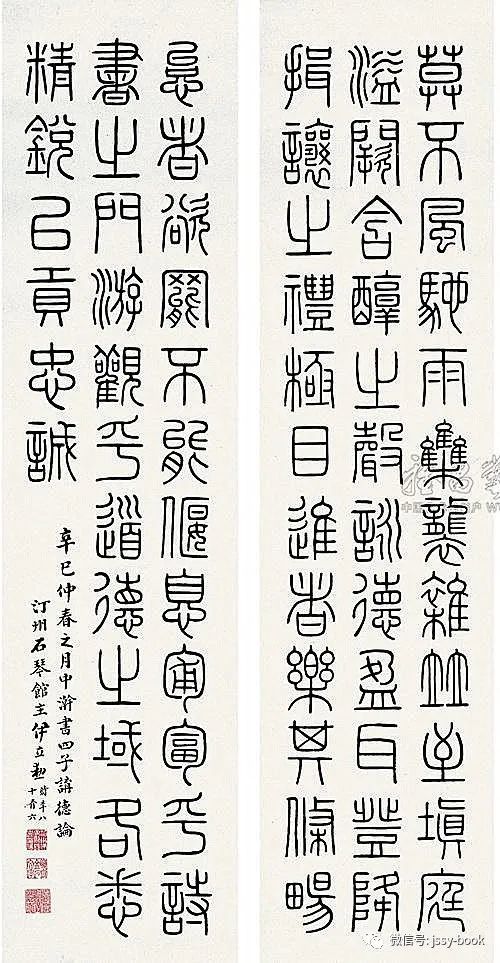 莫不風馳雨雧襲雜竝至塡庭
溢闕含醇之聲詠德盈耳登降
揖讓之禮極目進者樂其條暢
怠者欲罷不能偃息匍匐乎詩
書之門游觀乎道德之域各悉
精銳㠯貢忠誠
辛巳仲春之月中澣書四子講德論
汀州石琴館主伊立勳時年八
十有六
微信号: jssy-book